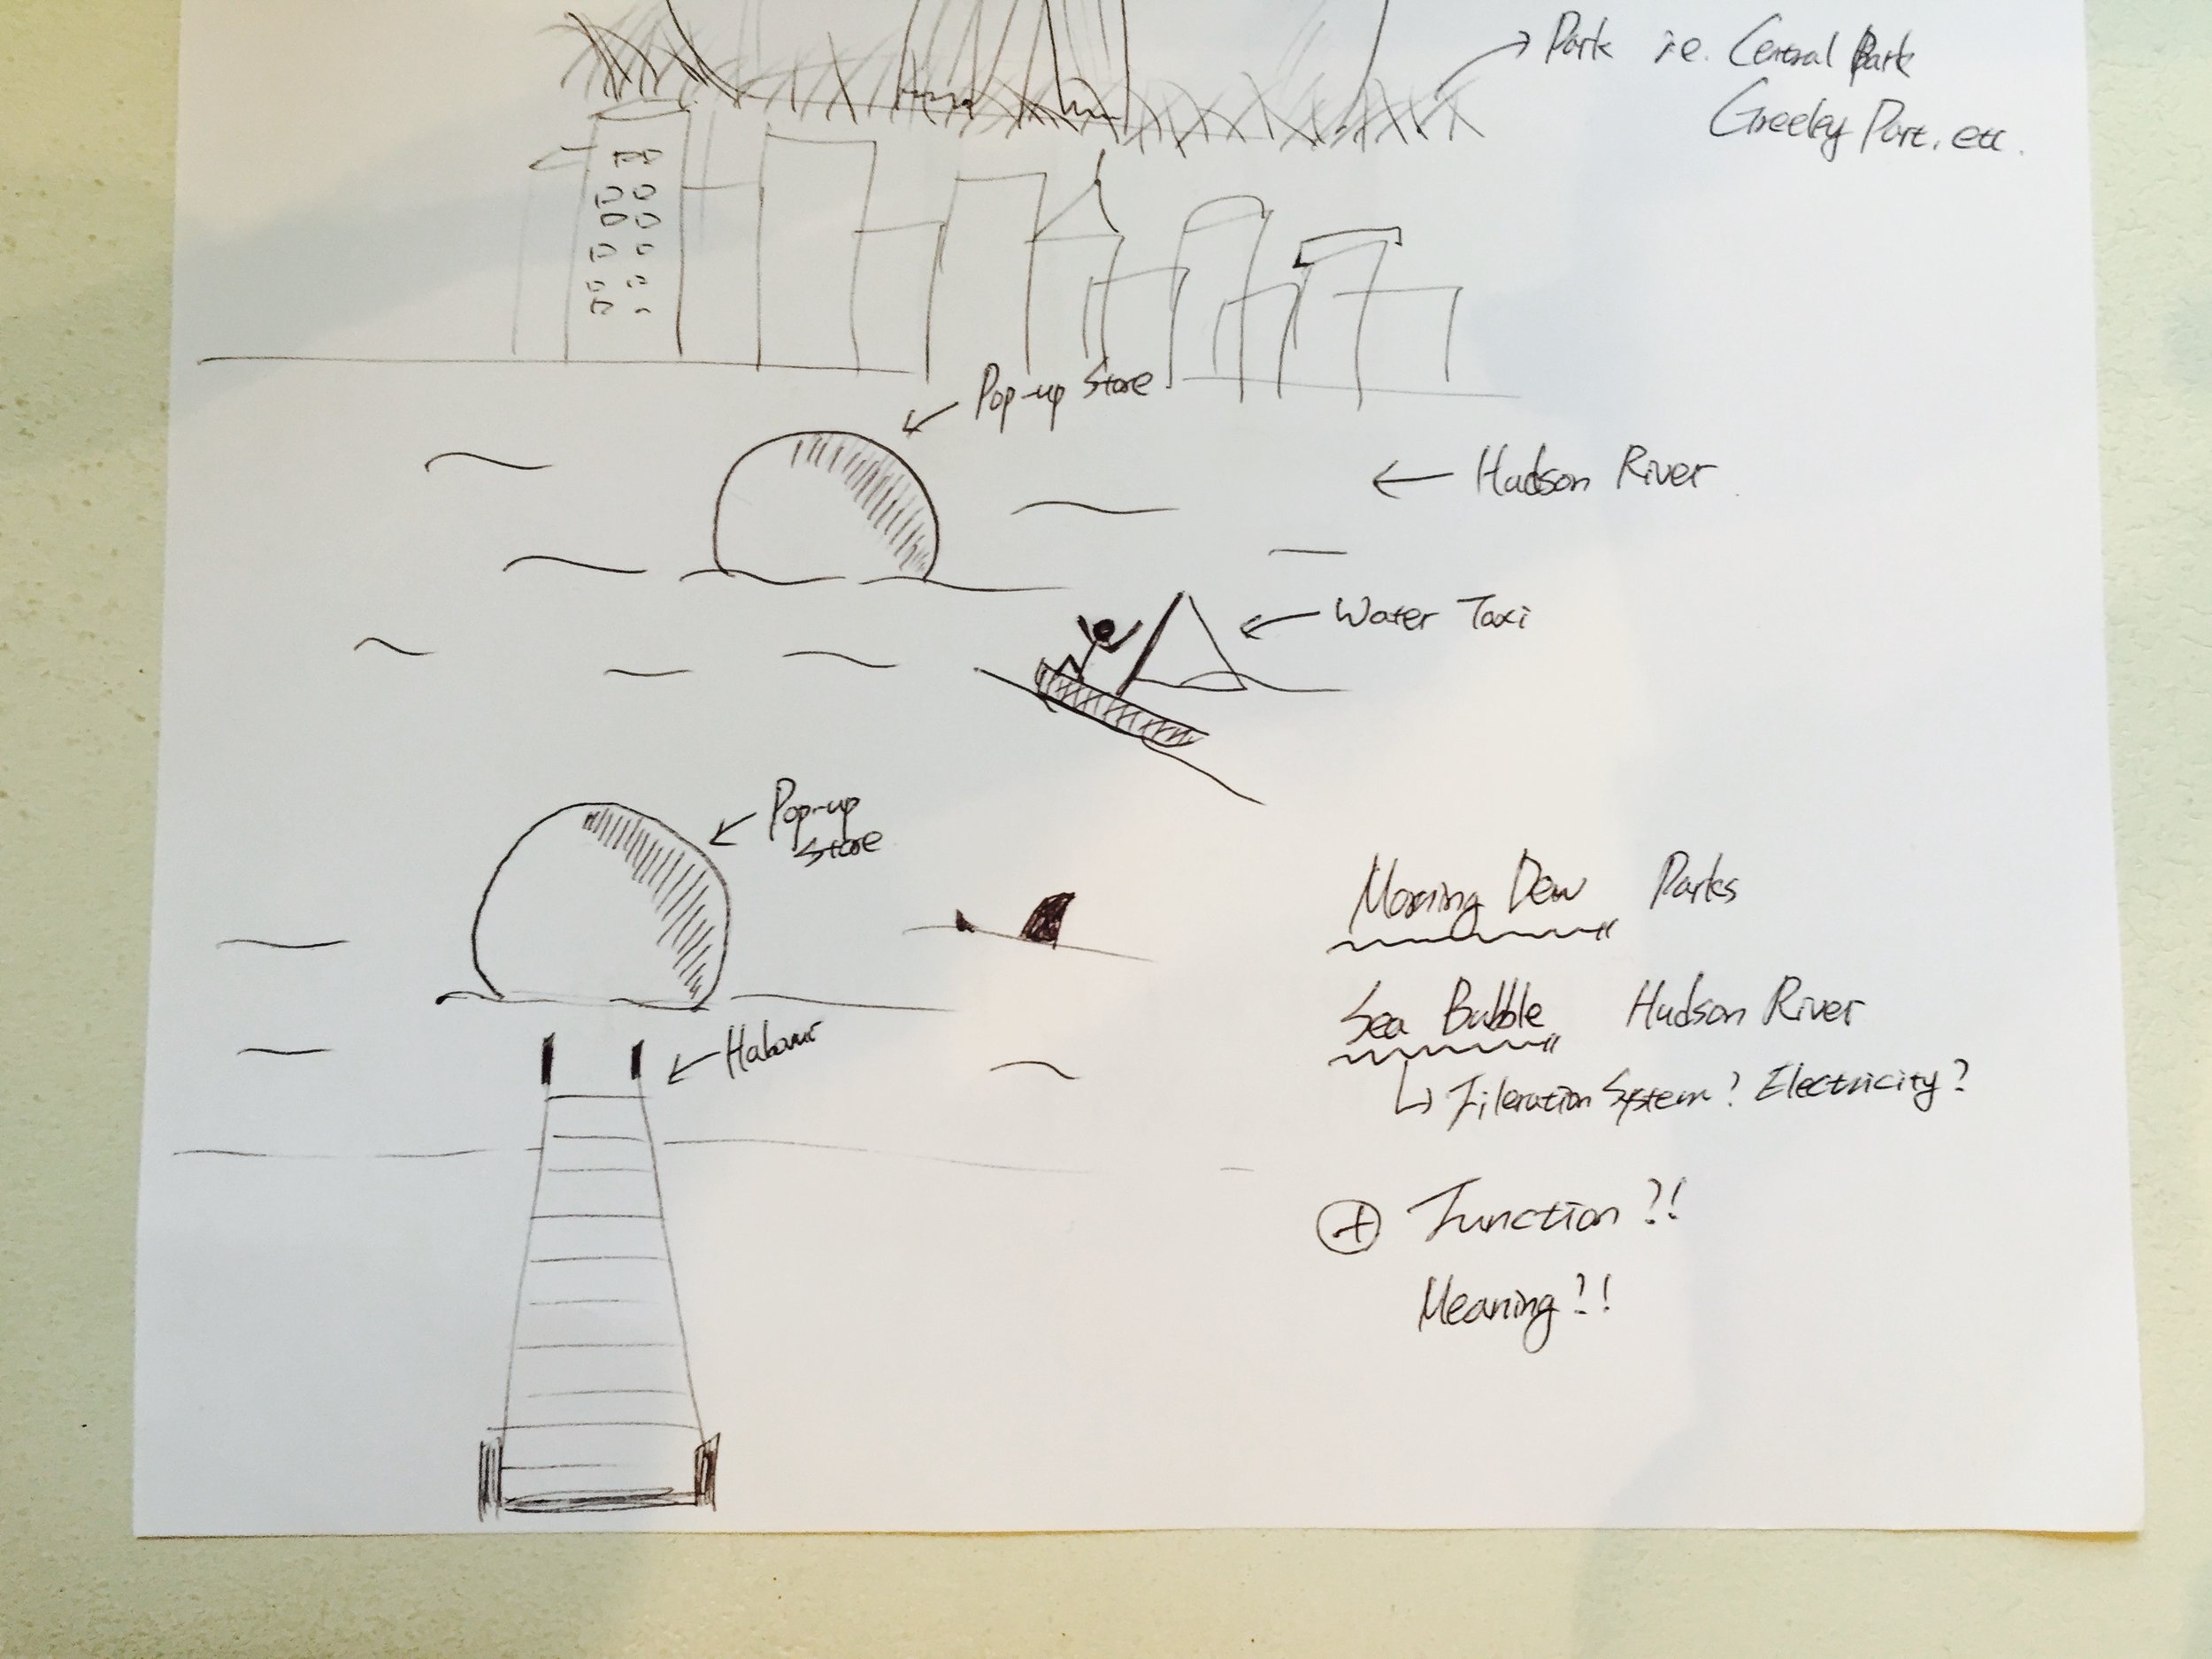 Park i.e. Central Park
Greeley Part, etc.
Pop-up Store
Hudson River
Water Taxi
Pop-up
Store
Morning Dew Parks
Sea Bubble Hudson River
Fileration System? Electricity?
Habour
+ Function?!
Meaning?!